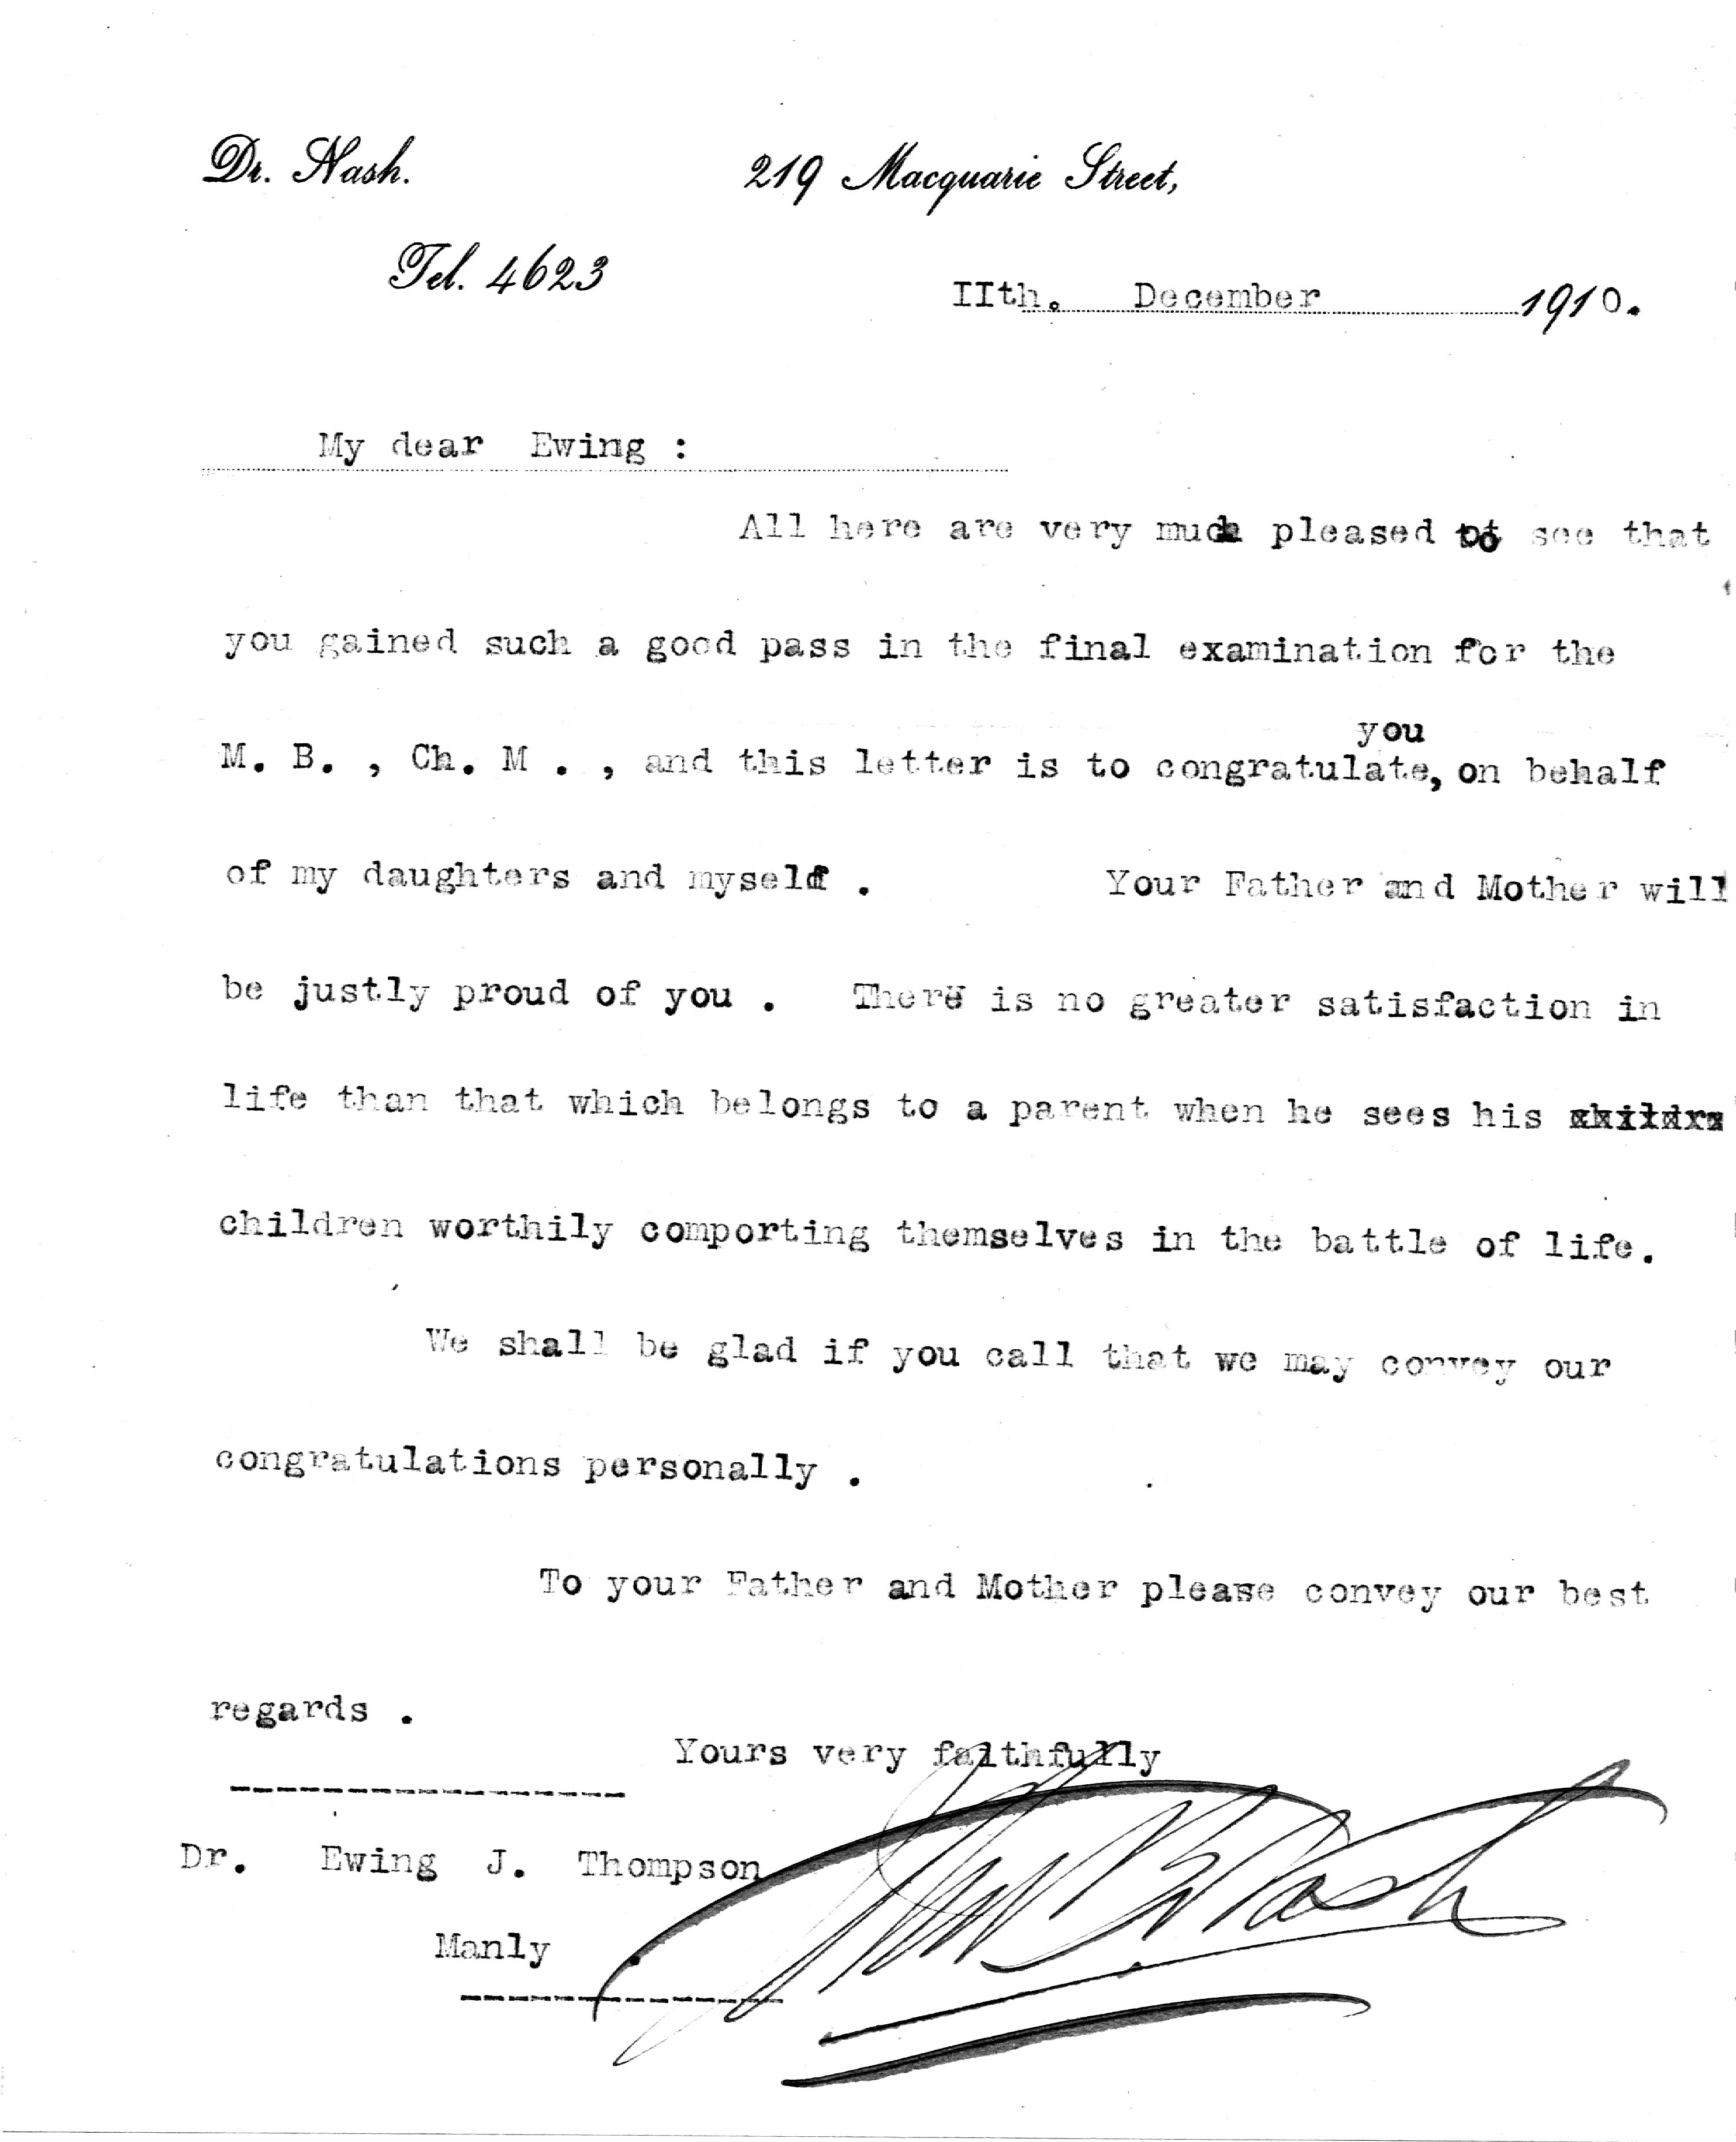 Dr. Nash.
219 Macquarie Street,
Tel. 4623
IIth. December 1910.
My dear Ewing :
All here are very much pleased to see that
you gained such a good pass in the final examination for the
you
M. B. , Ch. M . , and this letter is to congratulate, on behalf
of my daughters and myself . Your Father and Mother will
be justly proud of you . There is no greater satisfaction in
life than that which belongs to a parent when he sees his childre
children worthily comporting themselves in the battle of life.
We shall be glad if you call that we may convey our
congratulations personally .
To your Father and Mother please convey our best
regards .
Yours very faithfully
Dr. Ewing J. Thompson
Manly .
Nash